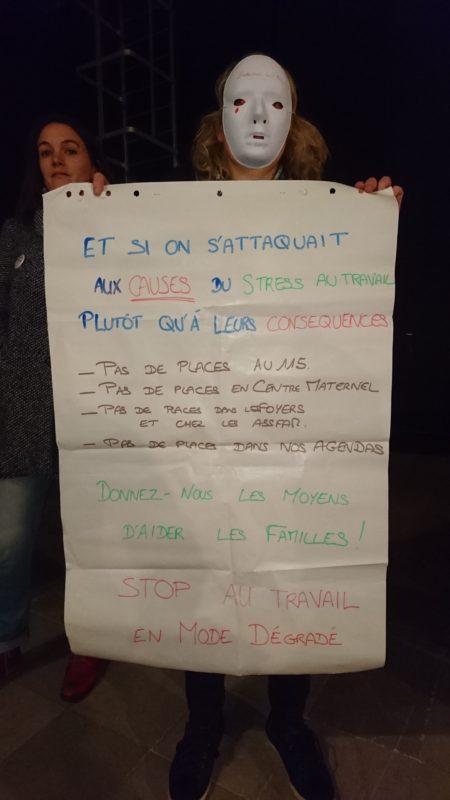 ET SI ON S'ATTAQUAIT
AUX CAUSES DU STRESS AU TRAVAIL
PLUTÔT QU'À LEURS CONSEQUENCES
— PAS DE PLACES AU M5.
— PAS DE PLACES EN CENTRE MATERNEL
— PAS DE PLACES DANS LES FOYERS
ET CHEZ LES ASSFAM.
— PAS DE PLACES DANS NOS AGENDAS
DONNEZ-NOUS LES MOYENS
D'AIDER LES FAMILLES !
STOP AU TRAVAIL
EN MODE DÉGRADÉ